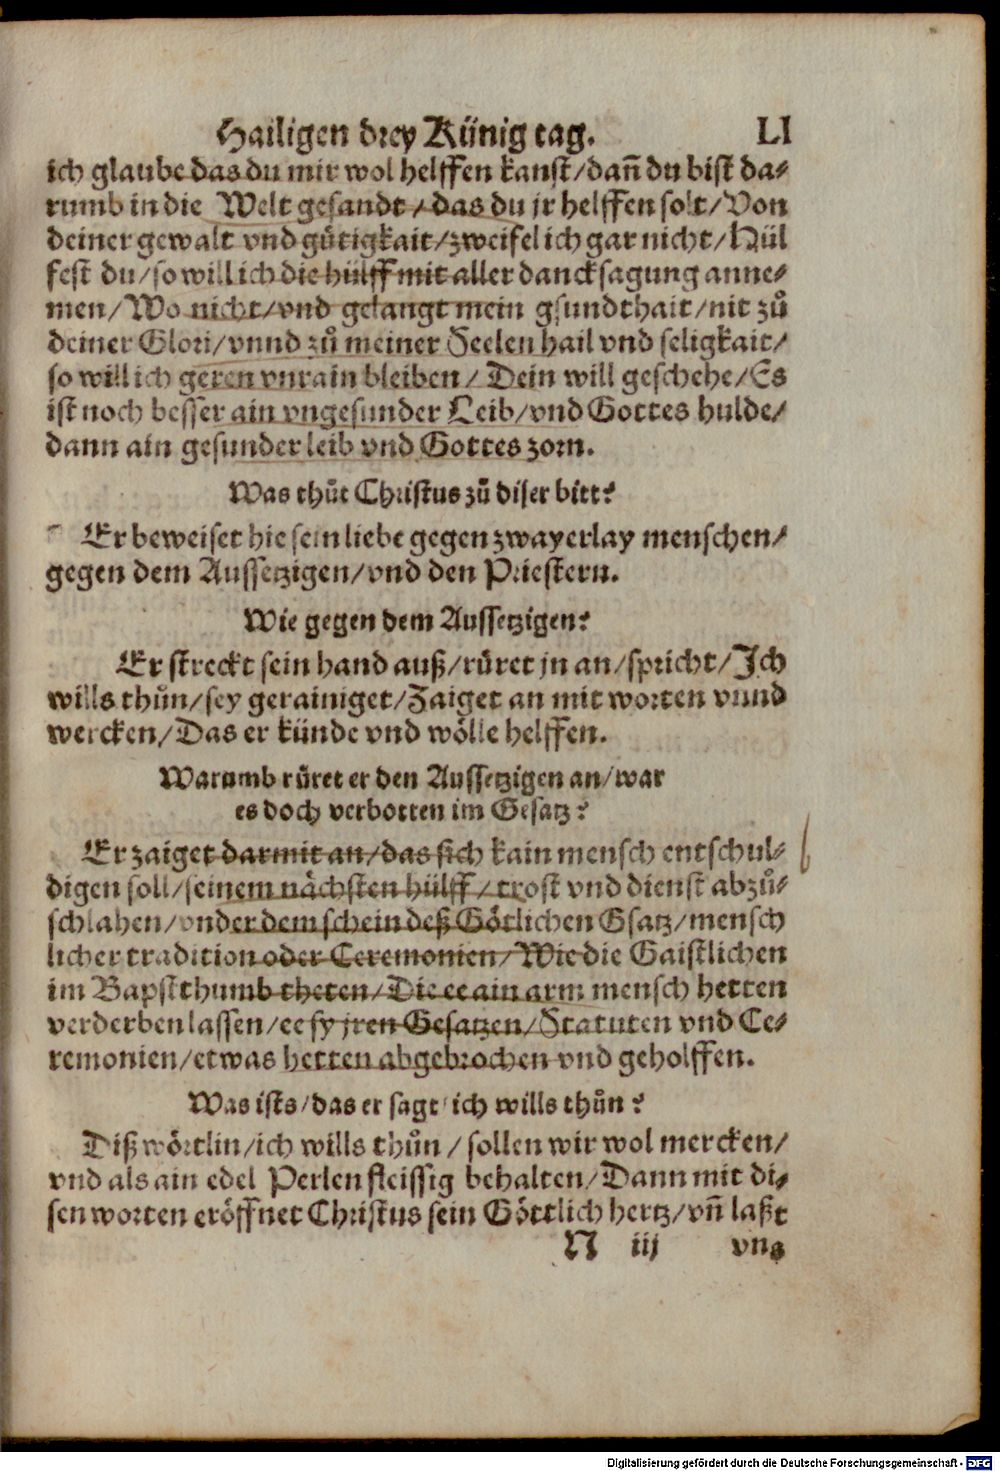 Hailigen drey Künig tag. LI
ich glaube das du mir wol helffen kanst/dañ du bist da-
rumb in die Welt gesandt/das du jr helffen solt/Von
deiner gewalt vnd gůtigkait/zweifel ich gar nicht/Hül
fest du/so will ich die hülff mit aller dancksagung anne-
men/Wo nicht/vnd gelangt mein gsundthait/nit zů
deiner Glori/vnnd zů meiner Seelen hail vnd seligkait/
so will ich geren vnrain bleiben/Dein will geschehe/Es
ist noch besser ain vngesunder Leib/vnd Gottes hulde/
dann ain gesunder leib vnd Gottes zorn.
Was thůt Christus zů diser bitt?
Er beweiset hie sein liebe gegen zwayerlay menschen/
gegen dem Aussetzigen/vnd den Priestern.
Wie gegen dem Aussetzigen?
Er streckt sein hand auß/růret jn an/spricht/Ich
wills thůn/sey gerainiget/Zaiget an mit worten vnnd
wercken/Das er künde vnd wölle helffen.
Warumb růret er den Aussetzigen an/war
es doch verbotten im Gesatz?
Er zaiget darmit an/das sich kain mensch entschul-
digen soll/seinem nächsten hülff/trost vnd dienst abzů-
schlahen/vnder dem schein deß Götlichen Gsatz/mensch
licher tradition oder Ceremonien/Wie die Gaistlichen
im Bapstthumb theten/Die ee ain arm mensch hetten
verderben lassen/ee sy jren Gesatzen/Statuten vnd Ce-
remonien/etwas hetten abgebrochen vnd geholffen.
Was ists/das er sagt/ich wills thůn?
Diß wörtlin/ich wills thůn/sollen wir wol mercken/
vnd als ain edel Perlen fleissig behalten/Dann mit di-
sen worten eröffnet Christus sein Göttlich hertz/vñ laßt
N iij vns
Digitalisierung gefördert durch die Deutsche Forschungsgemeinschaft - DFG